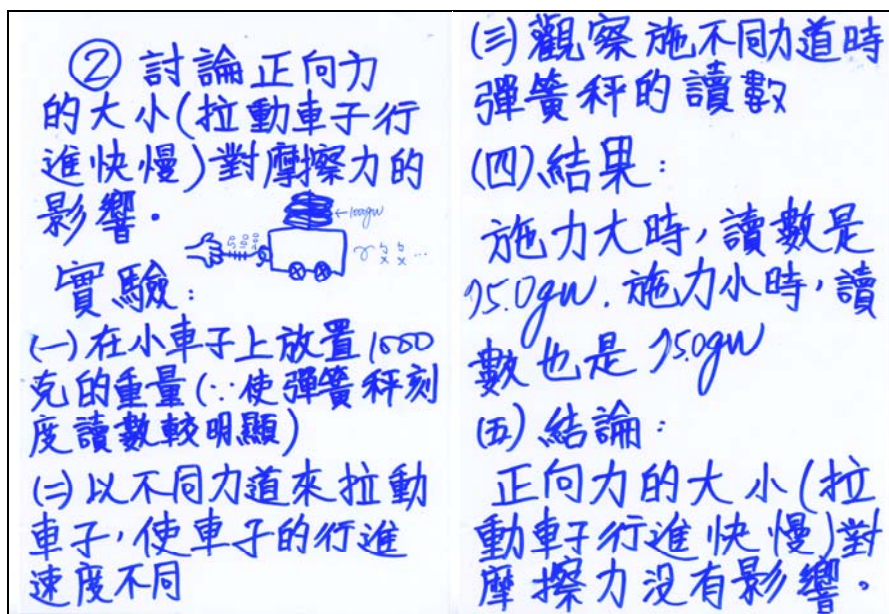 ② 討論正向力
的大小(拉動車子行
進快慢)對摩擦力的
影響。
←1000gw
實驗：
(一)在小車子上放置1000
克的重量(∵使彈簧秤刻
度讀數較明顯)
(二)以不同力道來拉動
車子，使車子的行進
速度不同
(三)觀察施不同力道時
彈簧秤的讀數
(四)結果：
施力大時，讀數是
75.0gw. 施力小時，讀
數也是75.0gw
(五)結論：
正向力的大小(拉
動車子行進快慢)對
摩擦力沒有影響。